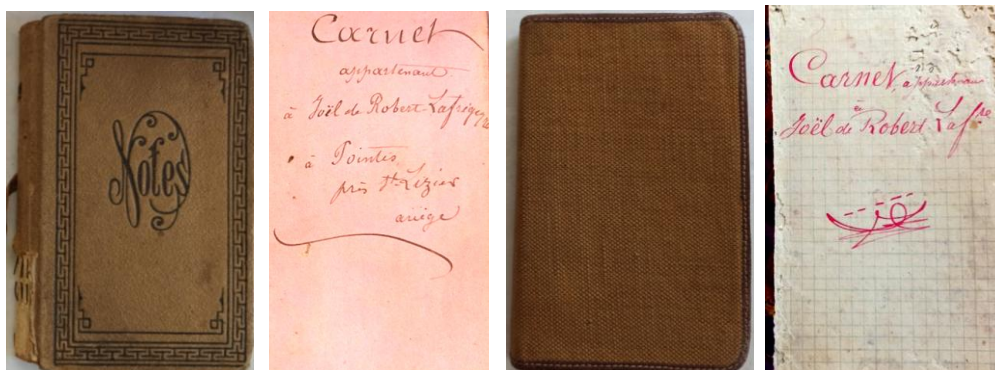 Notes
Carnet
appartenant
à Joël de Robert Lafrégeyre
à Pointis
près St Lizier
ariège
Carnet, appartenant
à
Joël de Robert Laf.re